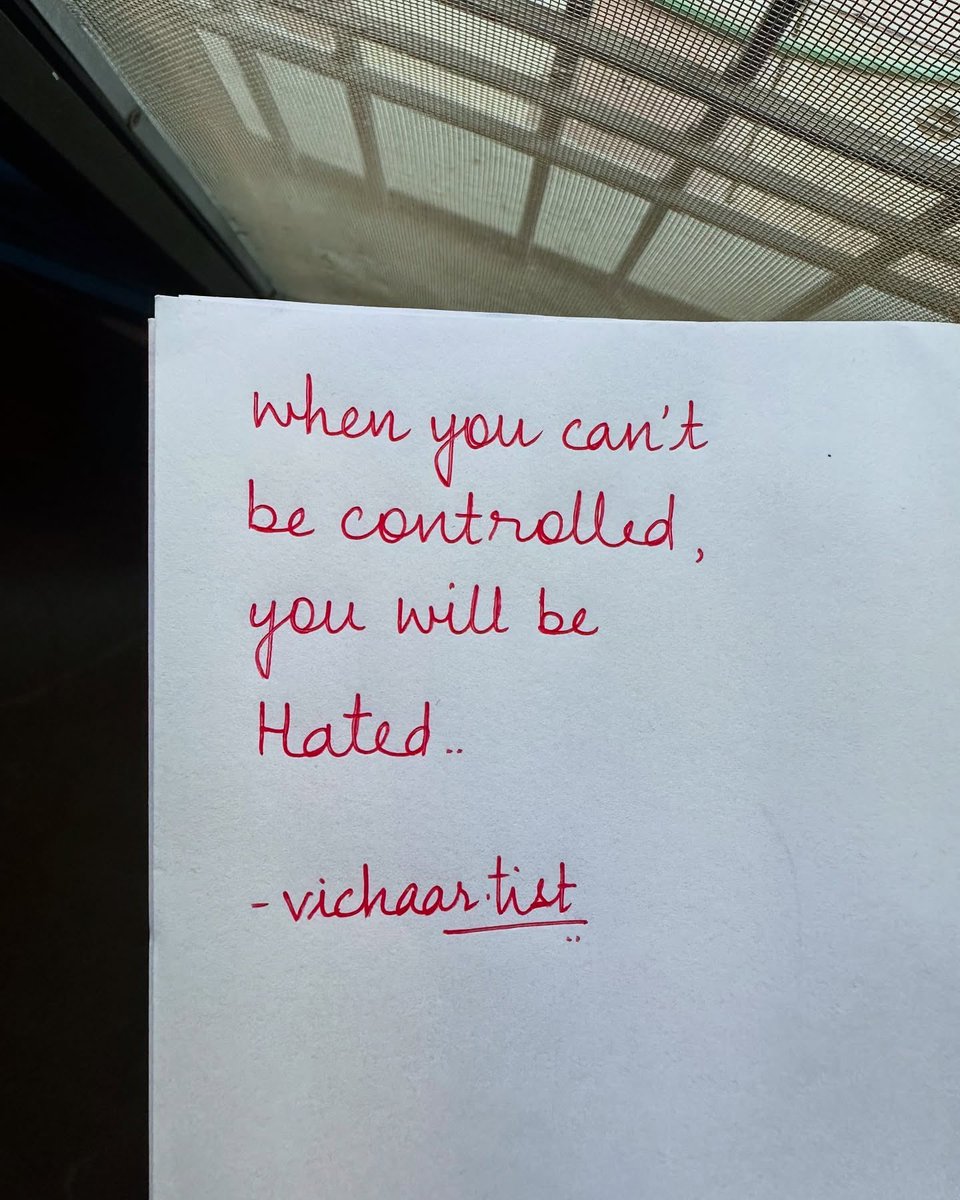 when you can't
be controlled,
you will be
Hated..
- vichaar.tist